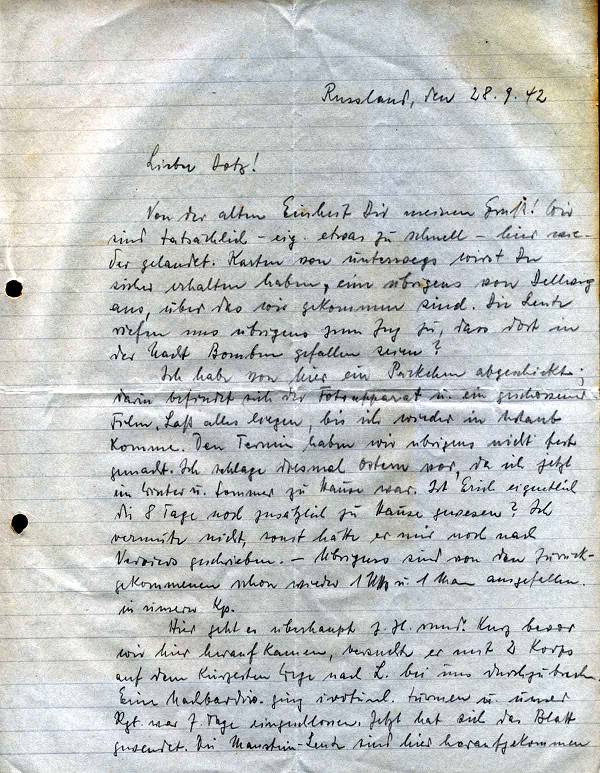 Russland, den 28.9.42
Lieber
Von der alten Einheit Dir meinen Gruß! Wir
sind tatsächlich – eig. etwas zu schnell – hier wie-
der gelandet. Karten von unterwegs wirst Du
sicher erhalten haben, eine übrigens von
aus, über das wir gekommen sind. Die Leute
riefen uns übrigens zum Zug zu, dass dort in
der Nacht Bomben gefallen seien?
Ich habe von hier ein Päckchen abgeschickt;
darin befindet sich der Fotoapparat u. ein geschossener
Film. Laß alles liegen, bis ich wieder in Urlaub
komme. Den Termin haben wir übrigens nicht fest
gemacht. Ich schlage diesmal Ostern vor, da ich jetzt
im Winter u. Sommer zu Hause war. Ist Erich eigentlich
die 8 Tage noch zusätzlich zu Hause gewesen? Ich
vermute nicht, sonst hätte er mir noch nach
geschrieben. – Übrigens sind von den Zurück-
gekommenen schon wieder 1 Uffz u. 1 Man ausgefallen.
in unserer Kp.
Hier geht es überhaupt z. Zt. rund. Kurz bevor
wir hier herauf kamen, versuchte er mit 2 Korps
auf dem kürzesten Wege nach L. bei uns durchzubrechen.
Eine Nachbardiv. ging türmen u. unser
Rgt. war 7 Tage eingeschlossen. Jetzt hat sich das Blatt
gewendet. Die Manstein-Leute sind hier heraufgekommen